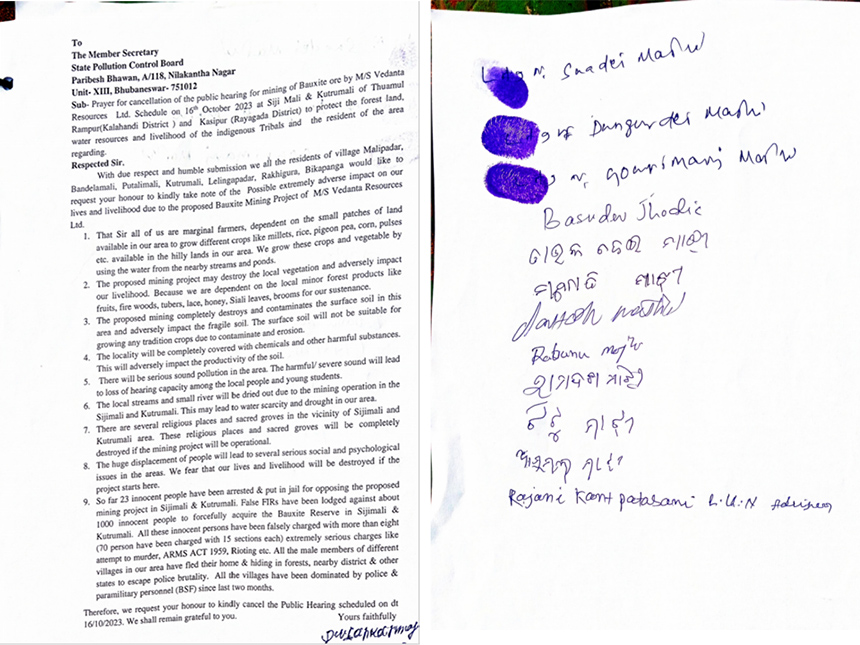 To
The Member Secretary
State Pollution Control Board
Paribesh Bhawan, A/118, Nilakantha Nagar
Unit- XIII, Bhubaneswar- 751012
Sub- Prayer for cancellation of the public hearing for mining of Bauxite ore by M/S Vedanta
Resources Ltd. Schedule on 16th October 2023 at Siji Mali & Kutrumali of Thuamul
Rampur(Kalahandi District ) and Kasipur (Rayagada District) to protect the forest land,
water resources and livelihood of the indigenous Tribals and the resident of the area
regarding.
Respected Sir.
With due respect and humble submission we all the residents of village Malipadar,
Bandelamali, Putalimali, Kutrumali, Lelingapadar, Rakhigura, Bikapanga would like to
request your honour to kindly take note of the Possible extremely adverse impact on our
lives and livelihood due to the proposed Bauxite Mining Project of M/S Vedanta Resources
Ltd.
1. That Sir all of us are marginal farmers, dependent on the small patches of land
available in our area to grow different crops like millets, rice, pigeon pea, corn, pulses
etc. available in the hilly lands in our area. We grow these crops and vegetable by
using the water from the nearby streams and ponds.
2. The proposed mining project may destroy the local vegetation and adversely impact
our livelihood. Because we are dependent on the local minor forest products like
fruits, fire woods, tubers, lace, honey, Siali leaves, brooms for our sustenance.
3. The proposed mining completely destroys and contaminates the surface soil in this
area and adversely impact the fragile soil. The surface soil will not be suitable for
growing any tradition crops due to contaminate and erosion.
4. The locality will be completely covered with chemicals and other harmful substances.
This will adversely impact the productivity of the soil.
5. There will be serious sound pollution in the area. The harmful/ severe sound will lead
to loss of hearing capacity among the local people and young students.
6. The local streams and small river will be dried out due to the mining operation in the
Sijimali and Kutrumali. This may lead to water scarcity and drought in our area.
7. There are several religious places and sacred groves in the vicinity of Sijimali and
Kutrumali area. These religious places and sacred groves will be completely
destroyed if the mining project will be operational.
8. The huge displacement of people will lead to several serious social and psychological
issues in the areas. We fear that our lives and livelihood will be destroyed if the
project starts here.
9. So far 23 innocent people have been arrested & put in jail for opposing the proposed
mining project in Sijimali & Kutrumali. False FIRs have been lodged against about
1000 innocent people to forcefully acquire the Bauxite Reserve in Sijimali &
Kutrumali. All these innocent persons have been falsely charged with more than eight
(70 person have been charged with 15 sections each) extremely serious charges like
attempt to murder, ARMS ACT 1959, Rioting etc. All the male members of different
villages in our area have fled their home & hiding in forests, nearby district & other
states to escape police brutality. All the villages have been dominated by police &
paramilitary personnel (BSF) since last two months.
Therefore, we request your honour to kindly cancel the Public Hearing scheduled on dt
16/10/2023. We shall remain grateful to you.
Yours faithfully
Majhi
Majhi
Majhi
Basudev Jhodia
ମାଝୀ
ମାଝୀ
Rabunu
ମାଝୀ
ମାଝୀ
ମାଝୀ
Rajani Kant